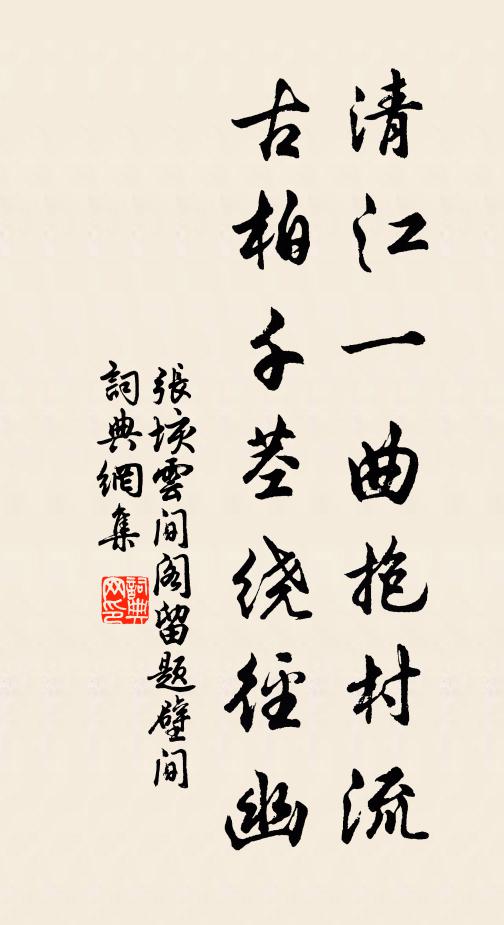 清江一曲抱村流
古柏千茎绕径幽
張垓雲间阁留题壁间
詞典網集